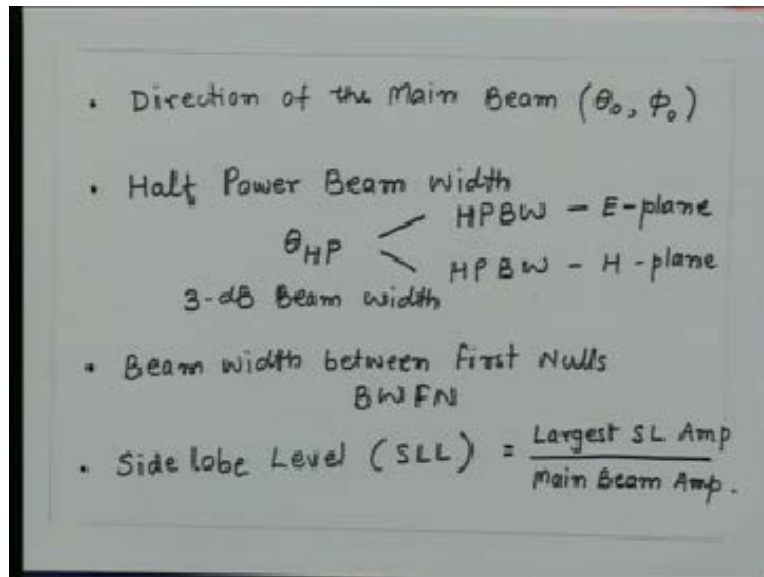 • Direction of the Main Beam (θ₀, φ₀)
• Half Power Beam Width
HPBW – E-plane
θHP
HPBW – H-plane
3-dB Beam width
• Beam width between First Nulls
BWFN
• Side lobe Level (SLL) = Largest SL Amp / Main Beam Amp.